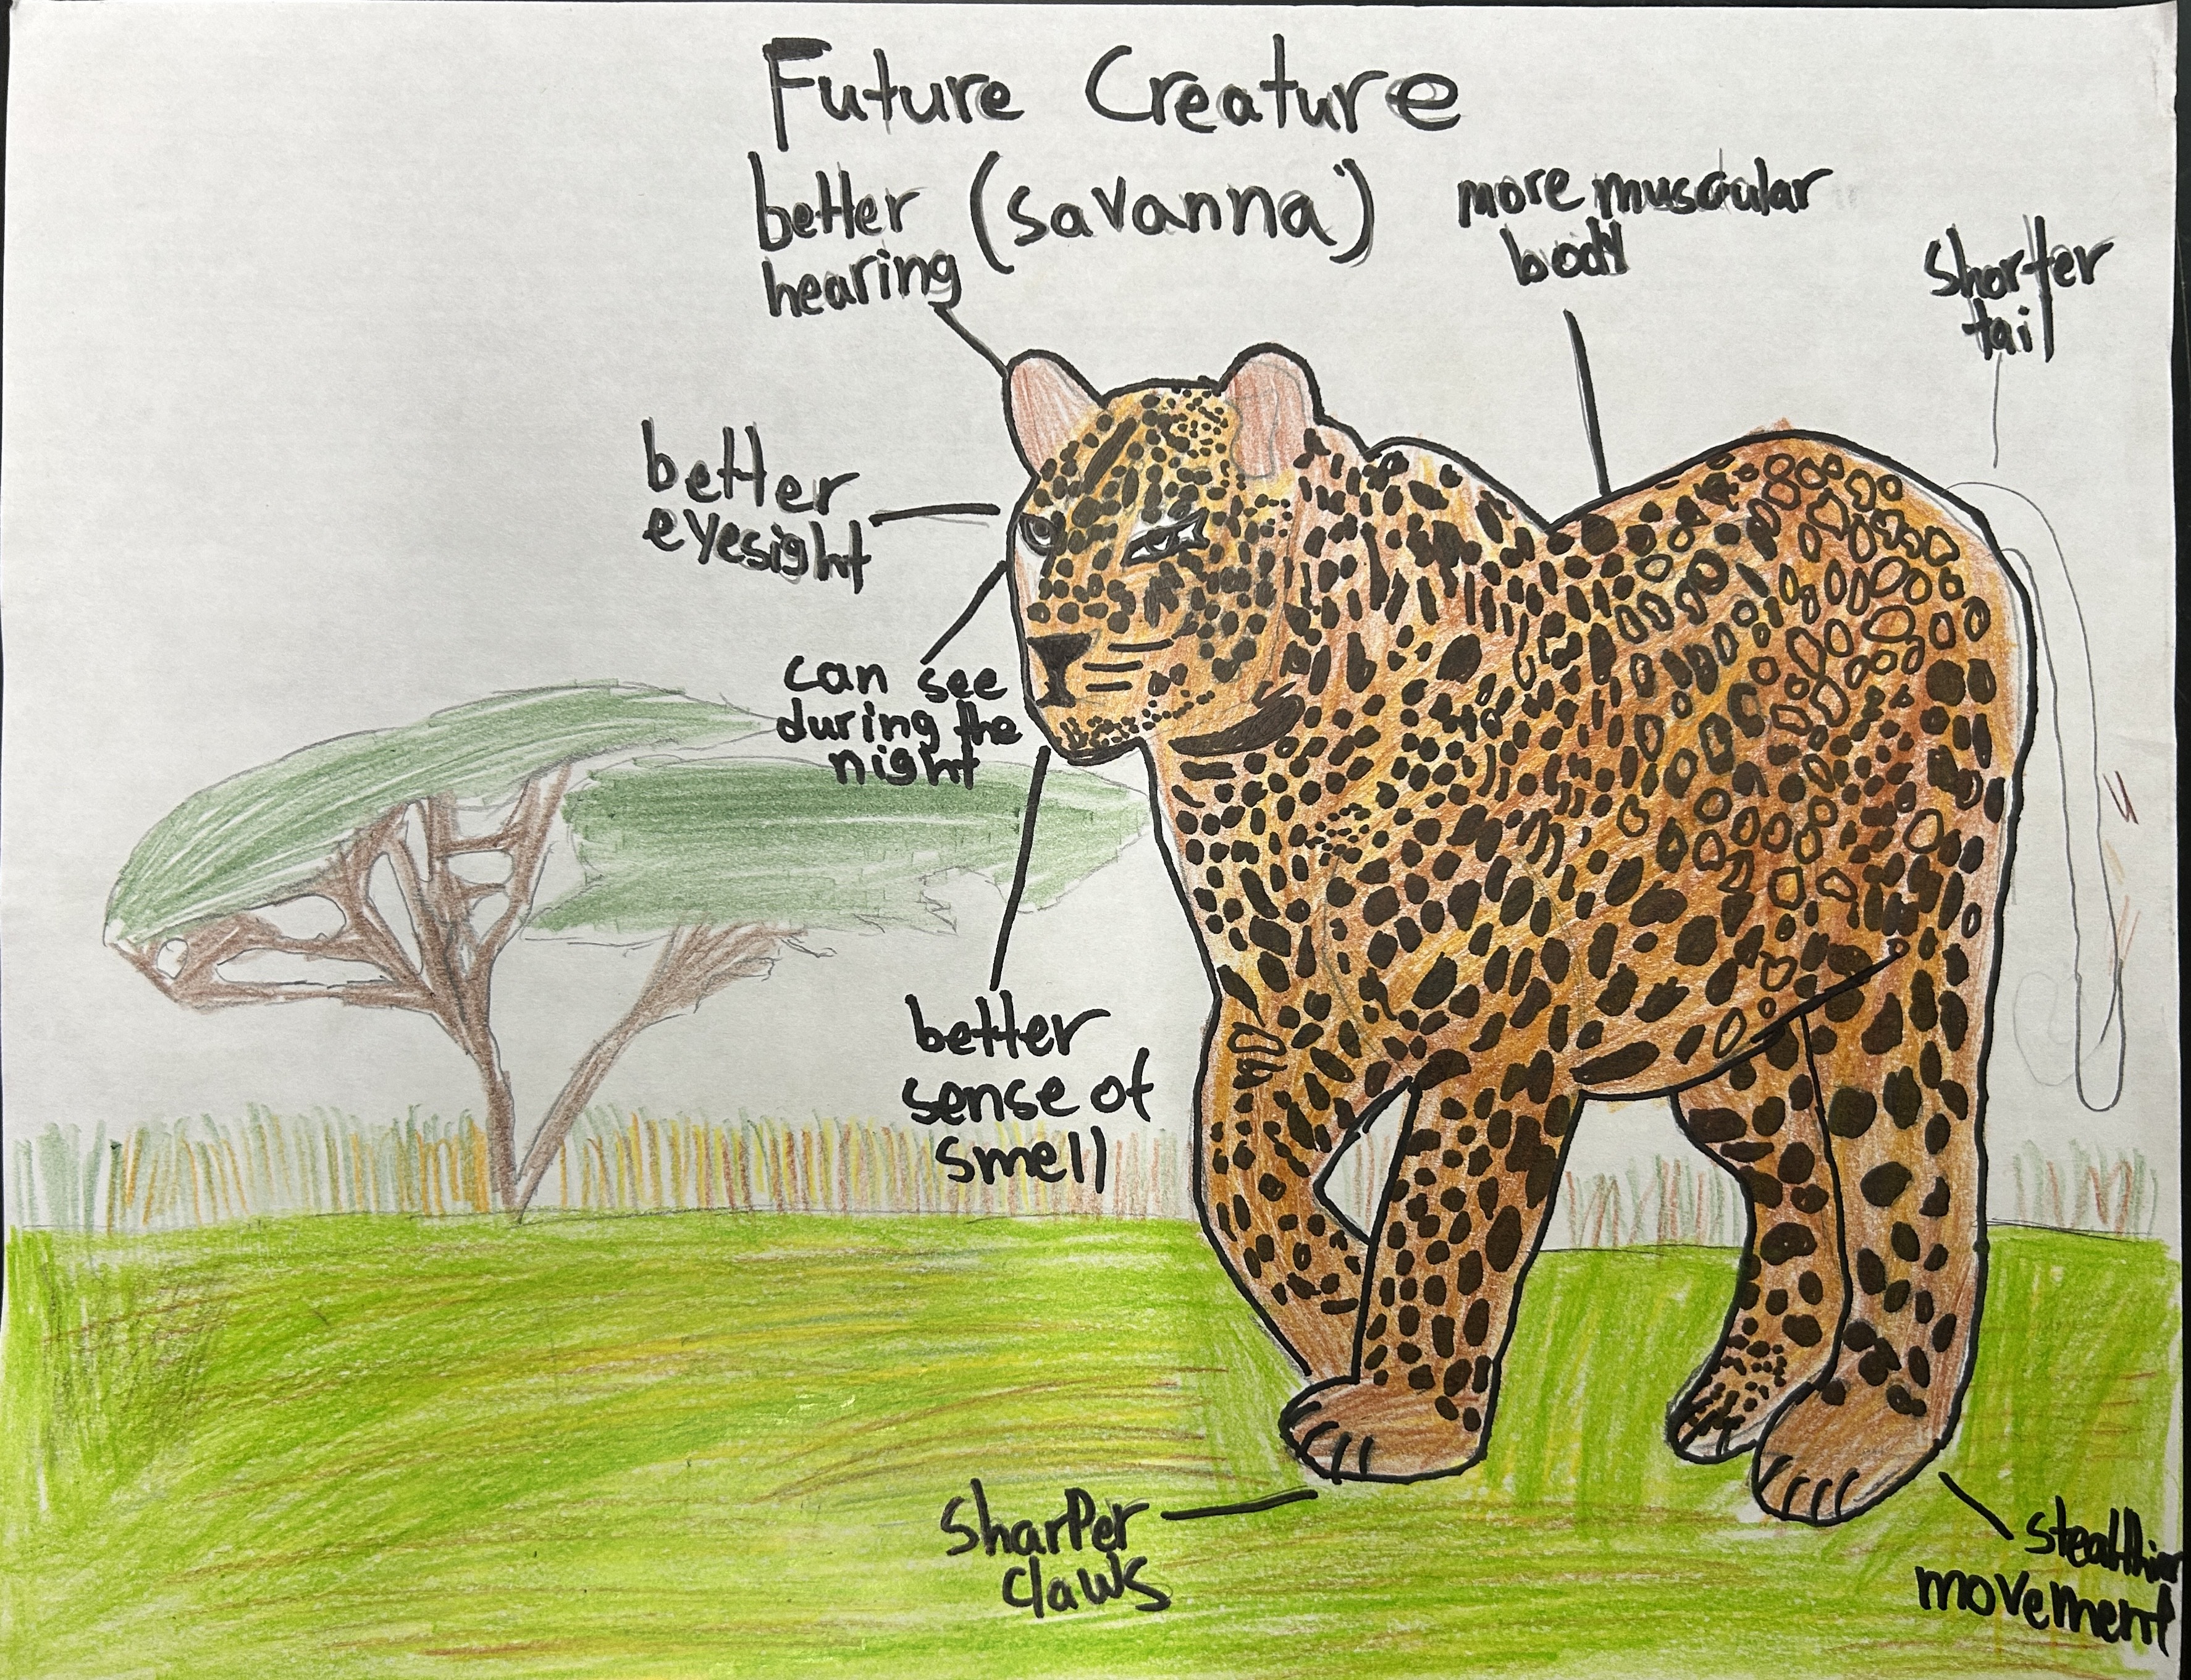 Future Creature
(savanna)
better
hearing
more muscular
body
shorter
tail
better
eyesight
can see
during the
night
better
sense of
smell
sharper
claws
stealthier
movement